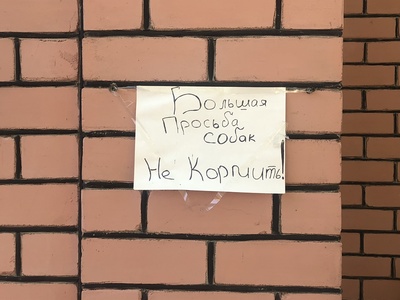 Большая
Просьба
собак
Не Кормить!